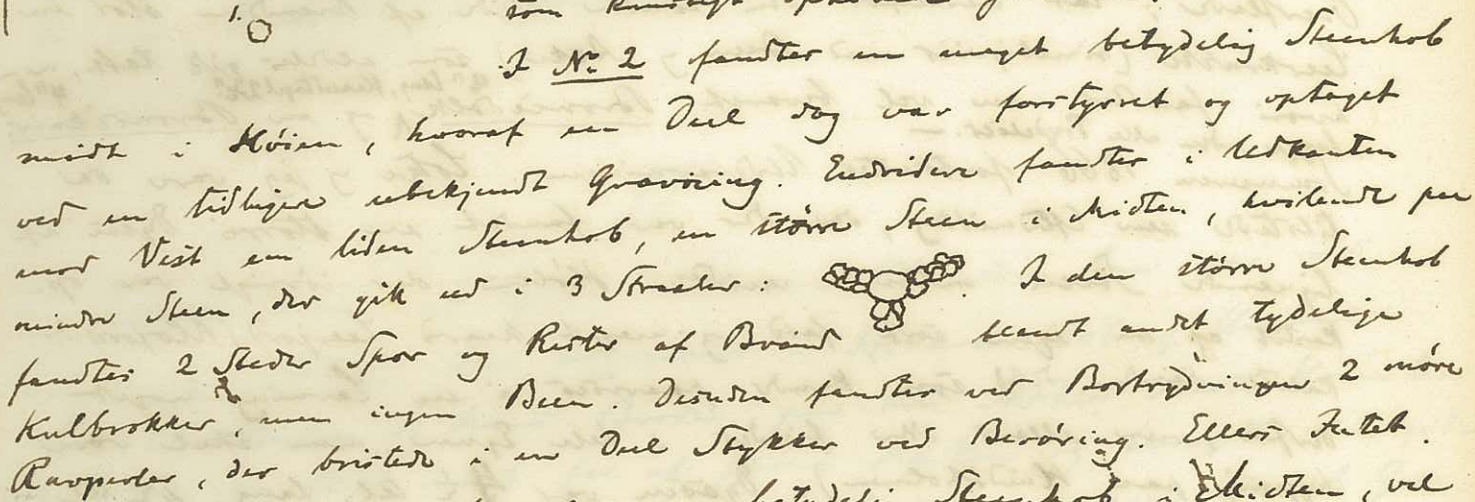 1.
som
I No 2 fandtes en meget betydelig Steenhob
midt i Høien, hvoraf en Deel dog var forstyrret og optaget
ved en tidligere ubekjendt Gravning. Endvidere fandtes i Udkanten
mod Vest en liden Steenhob, en større Steen i Midten, hvilende paa
mindre Steen, der gik ud i 3 Straaler: . I den større Steenhob
fandtes 2 Steder Spor og Rester af Brand blandt andet tydelige
Kulbrokker, men ingen Been. Desuden fandtes ved Bortrydningen 2 møre
Ravperler, der bristede i en Deel Stykker ved Berøring. Ellers Intet.
betydelig Steenhob i Midten, vel